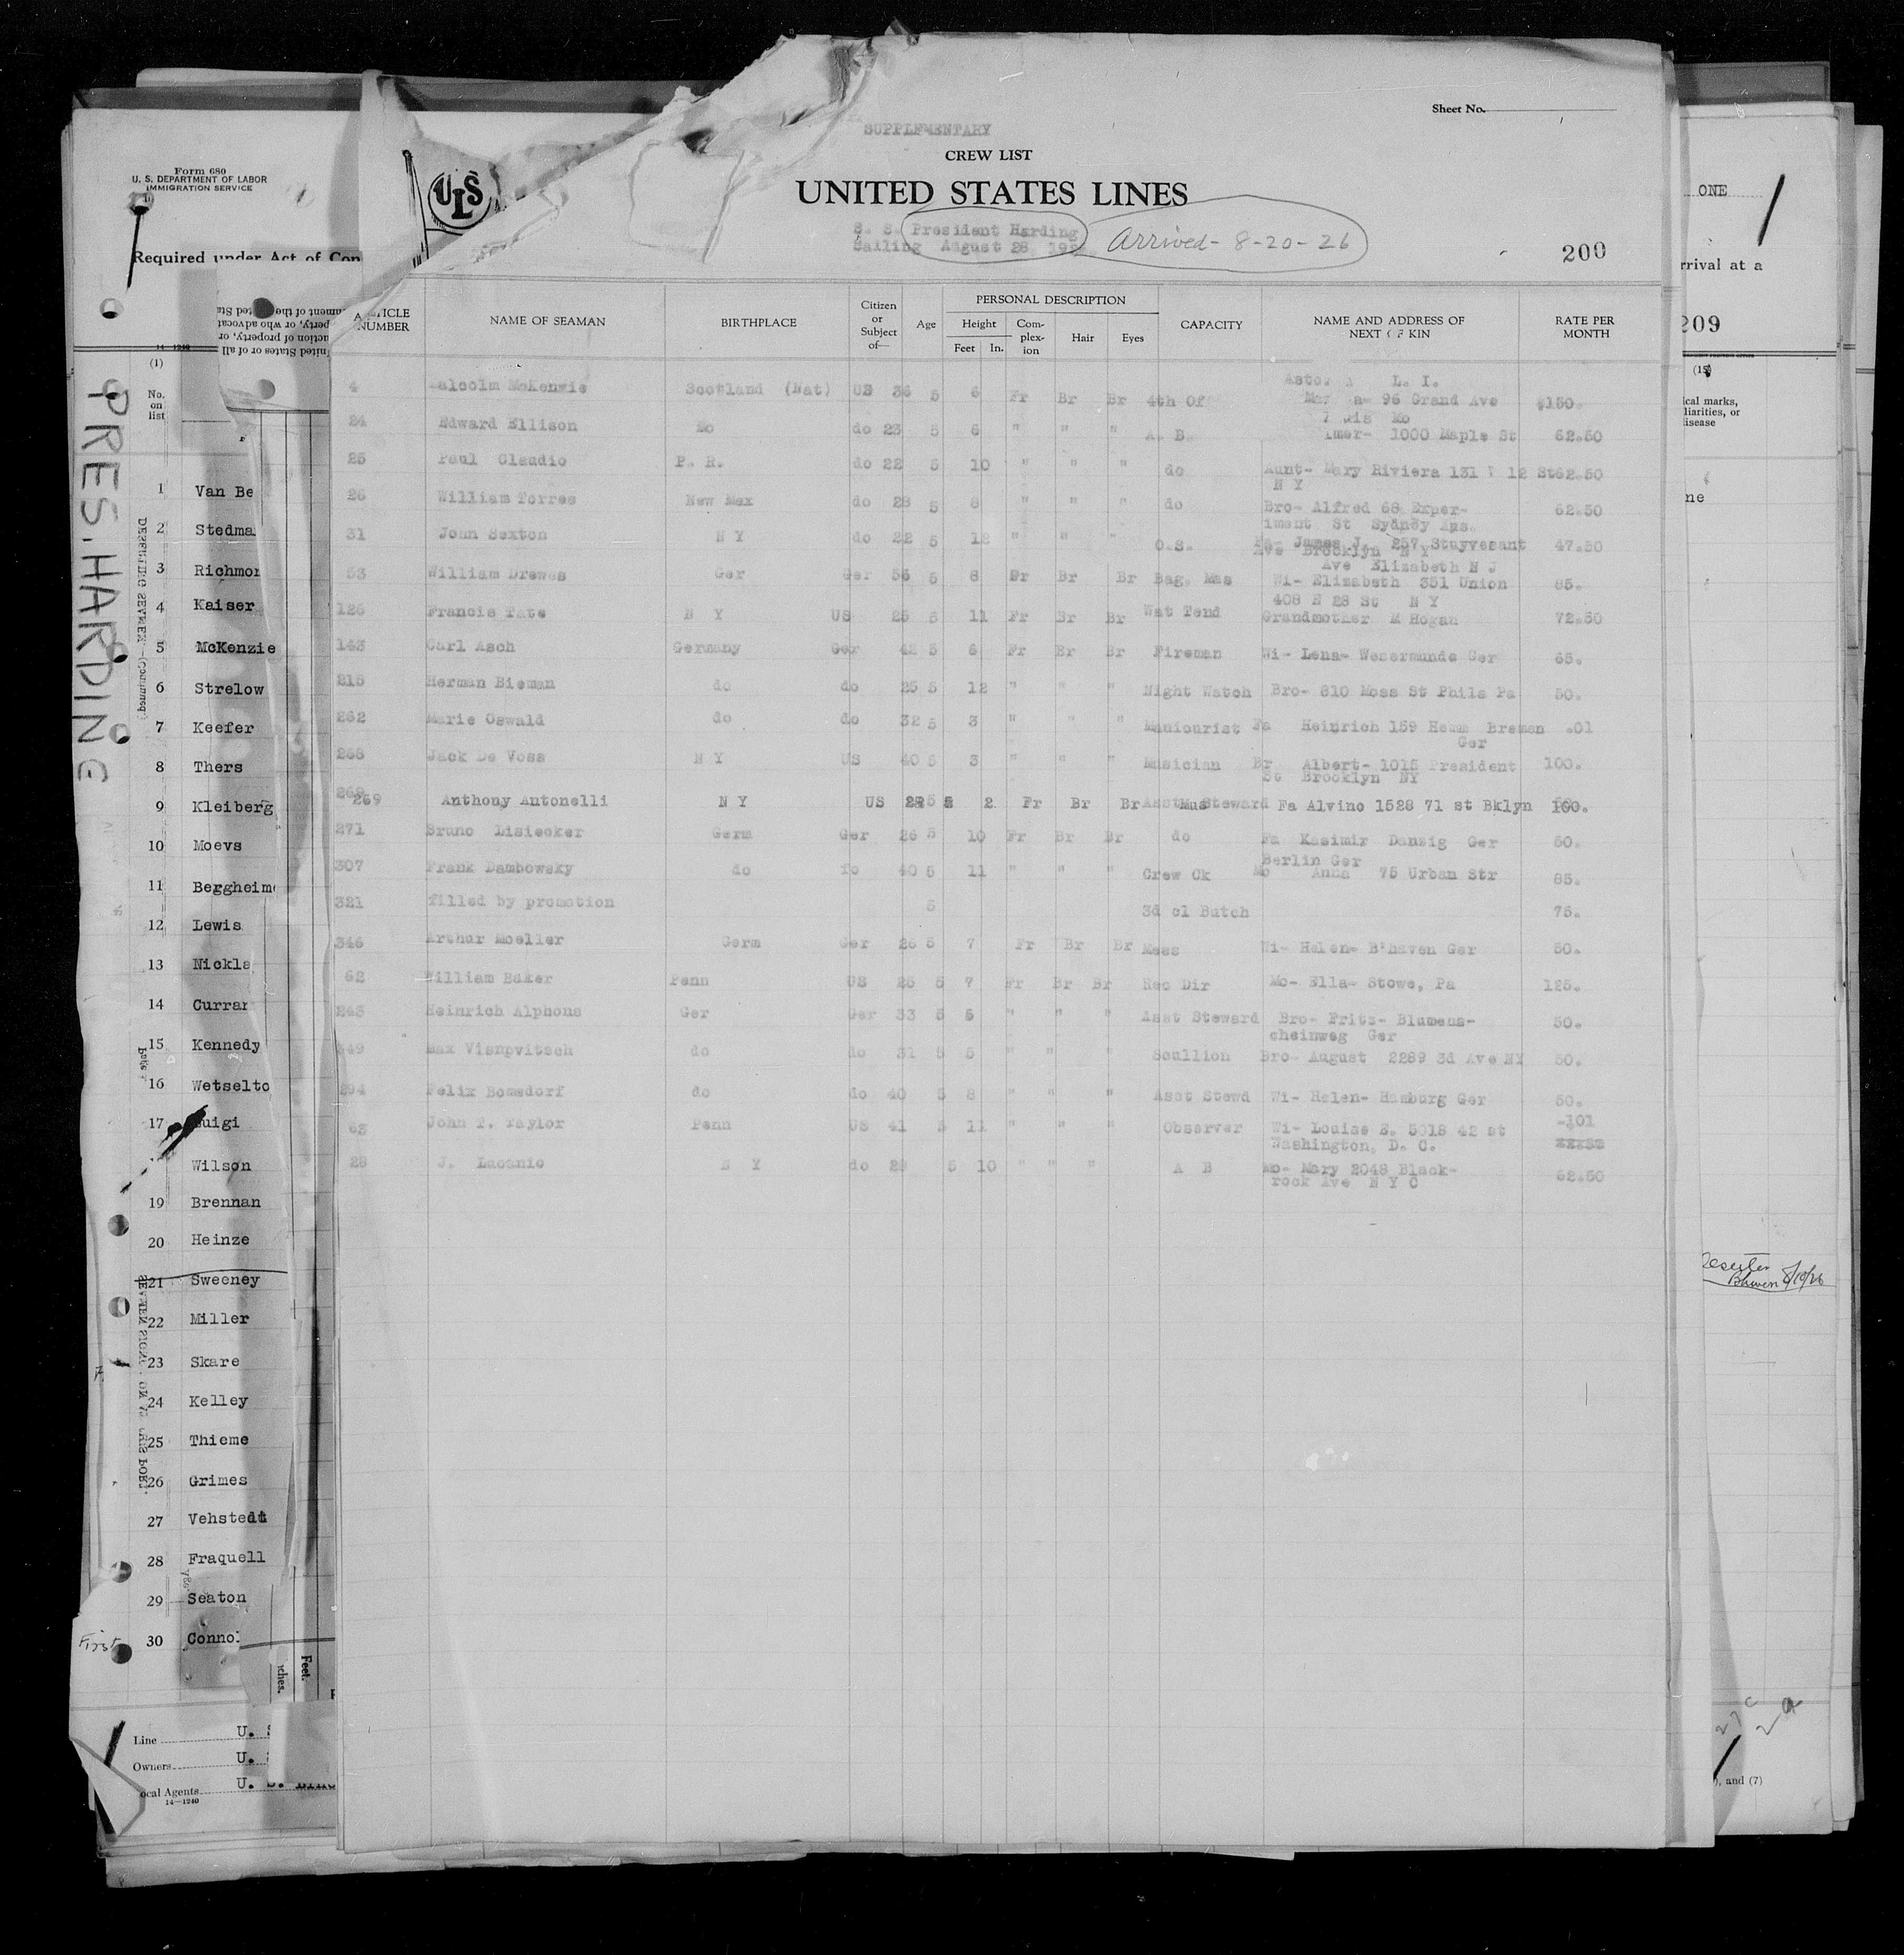 Sheet No.
SUPPLEMENTARY
CREW LIST
UNITED STATES LINES
ULS
S. S. President Harding
Sailing August 28 19
Arrived- 8-20-26
200
ARTICLE NUMBER NAME OF SEAMAN BIRTHPLACE Citizen or Subject of— Age PERSONAL DESCRIPTION Height Feet In. Com-plex-ion Hair Eyes CAPACITY NAME AND ADDRESS OF NEXT OF KIN RATE PER MONTH
L. I.
4 Malcolm McKenzie Scotland (Nat) US 36 5 6 Fr Br Br 4th Of 96 Grand Ave $150.
Mo
24 Edward Ellison Mo do 23 5 6 " " " A. B. 1000 Maple St 62.50
25 Paul Claudio P. R. do 22 5 10 " " " do Aunt- Mary Riviera 131 W 12 St 62.50
N Y
26 William Torres New Mex do 28 5 8 " " " do Bro- Alfred 68 Exper- 62.50
iment St Sydney Aus.
31 John Sexton N Y do 22 5 12 " " " O.S. Fa- James J. 257 Stuyvesant 47.50
Ave Brooklyn N Y
Ave Elizabeth N J
53 William Drewes Ger Ger 56 5 8 Fr Br Br Bag. Mas Wi- Elizabeth 351 Union 85.
408 E 28 St N Y
126 Francis Tate N Y US 25 5 11 Fr Br Br Wat Tend Grandmother M Hogan 72.50
143 Carl Asch Germany Ger 42 5 6 Fr Br Br Fireman Wi- Lena- Wesermunde Ger 65.
215 Herman Bieman do do 25 5 12 " " " Night Watch Bro- 810 Moss St Phila Pa 50.
262 Marie Oswald do do 32 5 3 " " " Manicurist Fa Heinrich 159 Hemm Bremen .01
Ger
268 Jack De Voss N Y US 40 5 3 " " " Musician Br Albert- 1015 President 100.
St Brooklyn NY
269 Anthony Antonelli N Y US 5 2 Fr Br Br Mus Fa Alvino 1528 71 st Bklyn 100.
271 Bruno Lisiecker Germ Ger 26 5 10 Fr Br Br do Fa Kasimir Danzig Ger 50.
Berlin Ger
307 Frank Dambowsky do do 40 5 11 " " " Crew Ck Mo Anna 75 Urban Str 85.
321 filled by promotion 5 3d cl Butch 75.
346 Arthur Moeller Germ Ger 26 5 7 Fr Br Br Mess Wi- Helen- B'haven Ger 50.
62 William Baker Penn US 25 5 7 Fr Br Br Rec Dir Mo- Ella- Stowe, Pa 125.
243 Heinrich Alphons Ger Ger 33 5 5 " " " Asst Steward Bro- Fritz- Blumens- 50.
cheinweg Ger
349 Max Visnovitsch do do 31 5 5 " " " Scullion Bro- August 2289 3d Ave NY 50.
294 Felix Bomsdorf do do 40 5 8 " " " Asst Stewd Wi- Helen- Hamburg Ger 50.
63 John T. Taylor Penn US 41 5 11 " " " Observer Wi- Louise E. 5018 42 st .101
Washington, D. C.
28 J. Laconic N Y do 28 5 10 " " " A B Mo- Mary 2048 Black- 62.50
rock Ave N Y C
Form 680
U. S. DEPARTMENT OF LABOR
IMMIGRATION SERVICE
Required under Act of Con
14-1240
(1)
No. on list
PRES. HARDING
1 Van Be
2 Stedma
3 Richmon
4 Kaiser
5 McKenzie
6 Strelow
7 Keefer
8 Thers
9 Kleiberg
10 Moevs
11 Bergheime
12 Lewis
13 Nickla
14 Curran
15 Kennedy
16 Wetselto
17 Luigi
Wilson
19 Brennan
20 Heinze
21 Sweeney
22 Miller
23 Skare
24 Kelley
25 Thieme
26 Grimes
27 Vehstedt
28 Fraquell
29 Seaton
30 Conno
First
Feet.
Inches.
Line U.
Owners U.
ocal Agents U. S.
14—1240
ONE
rrival at a
209
(15)
ical marks,
liarities, or
isease
ne
8/10/26
), and (7)